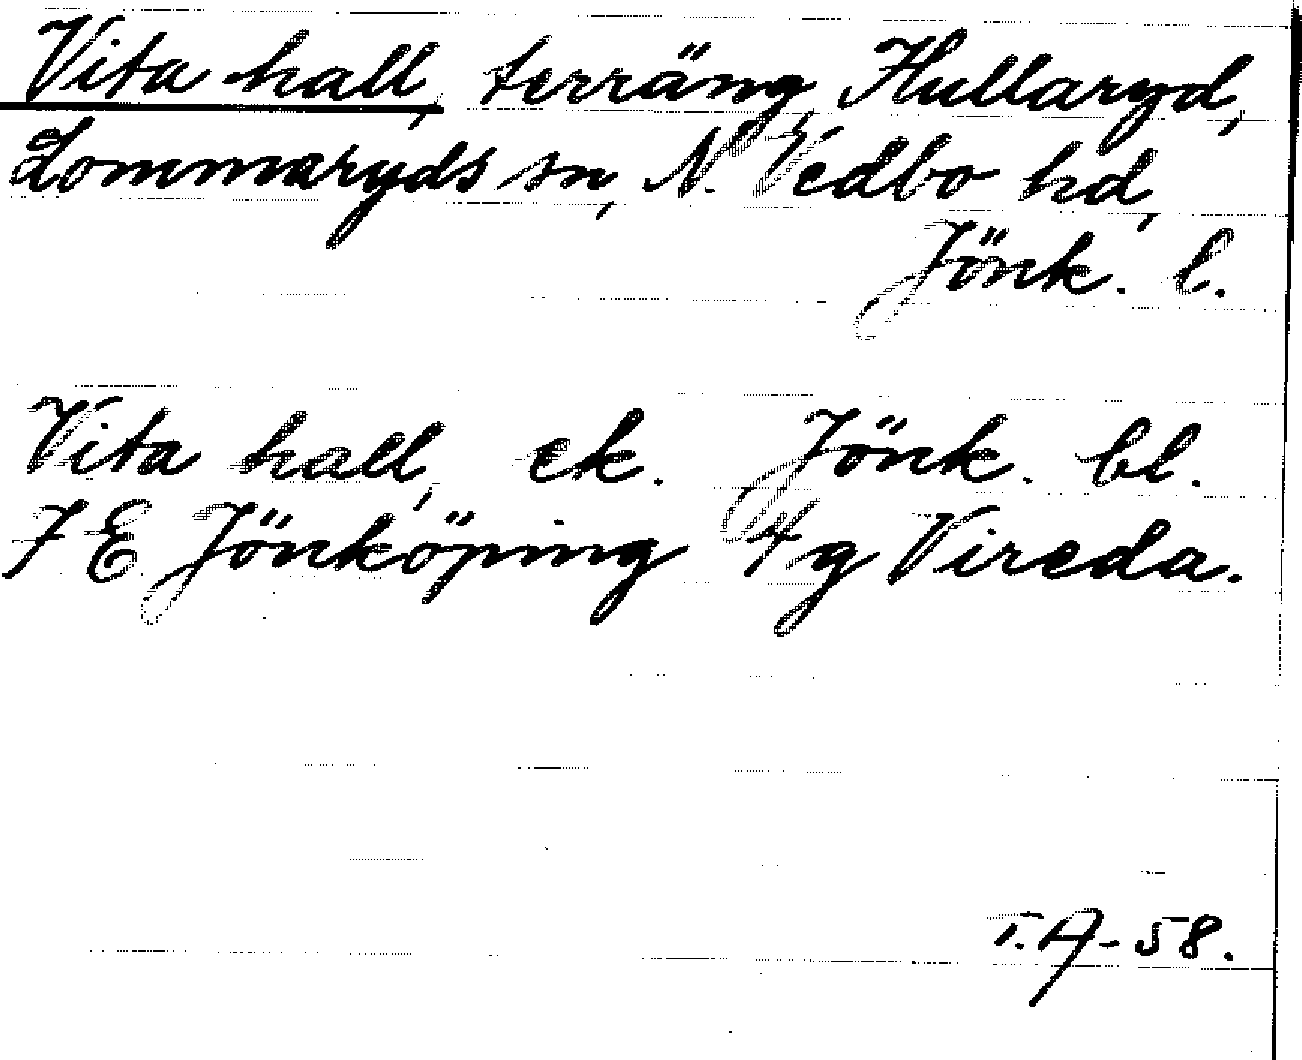 Vita hall, terräng, Hullaryd,
Lommaryds sn, N. Vedbo hd,
Jönk. l.
Vita hall, ek. Jönk. bl.
7 E Jönköping 4 g Vireda.
T.A-58.